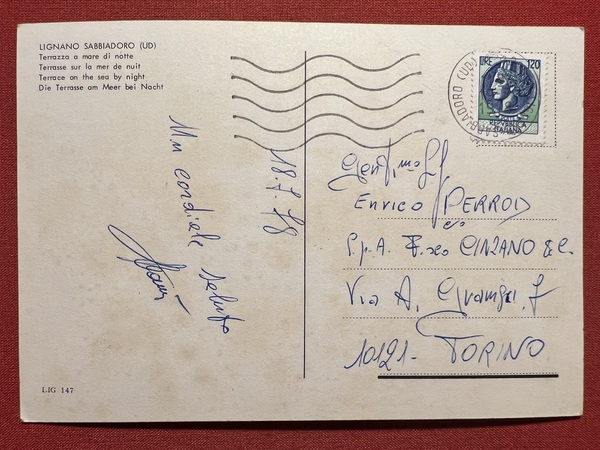 LIGNANO SABBIADORO (UD)
Terrazza a mare di notte
Terrasse sur la mer de nuit
Terrace on the sea by night
Die Terrasse am Meer bei Nacht
18.7.78
Un cordiale saluto
LIRE 120
REPUBBLICA
ITALIANA
Gent/mo
ENRICO PERROD
c/o
S.p.A. F.sco CINZANO & C.
Via A. Gramsci, 7
10121 - TORINO
LIG 147